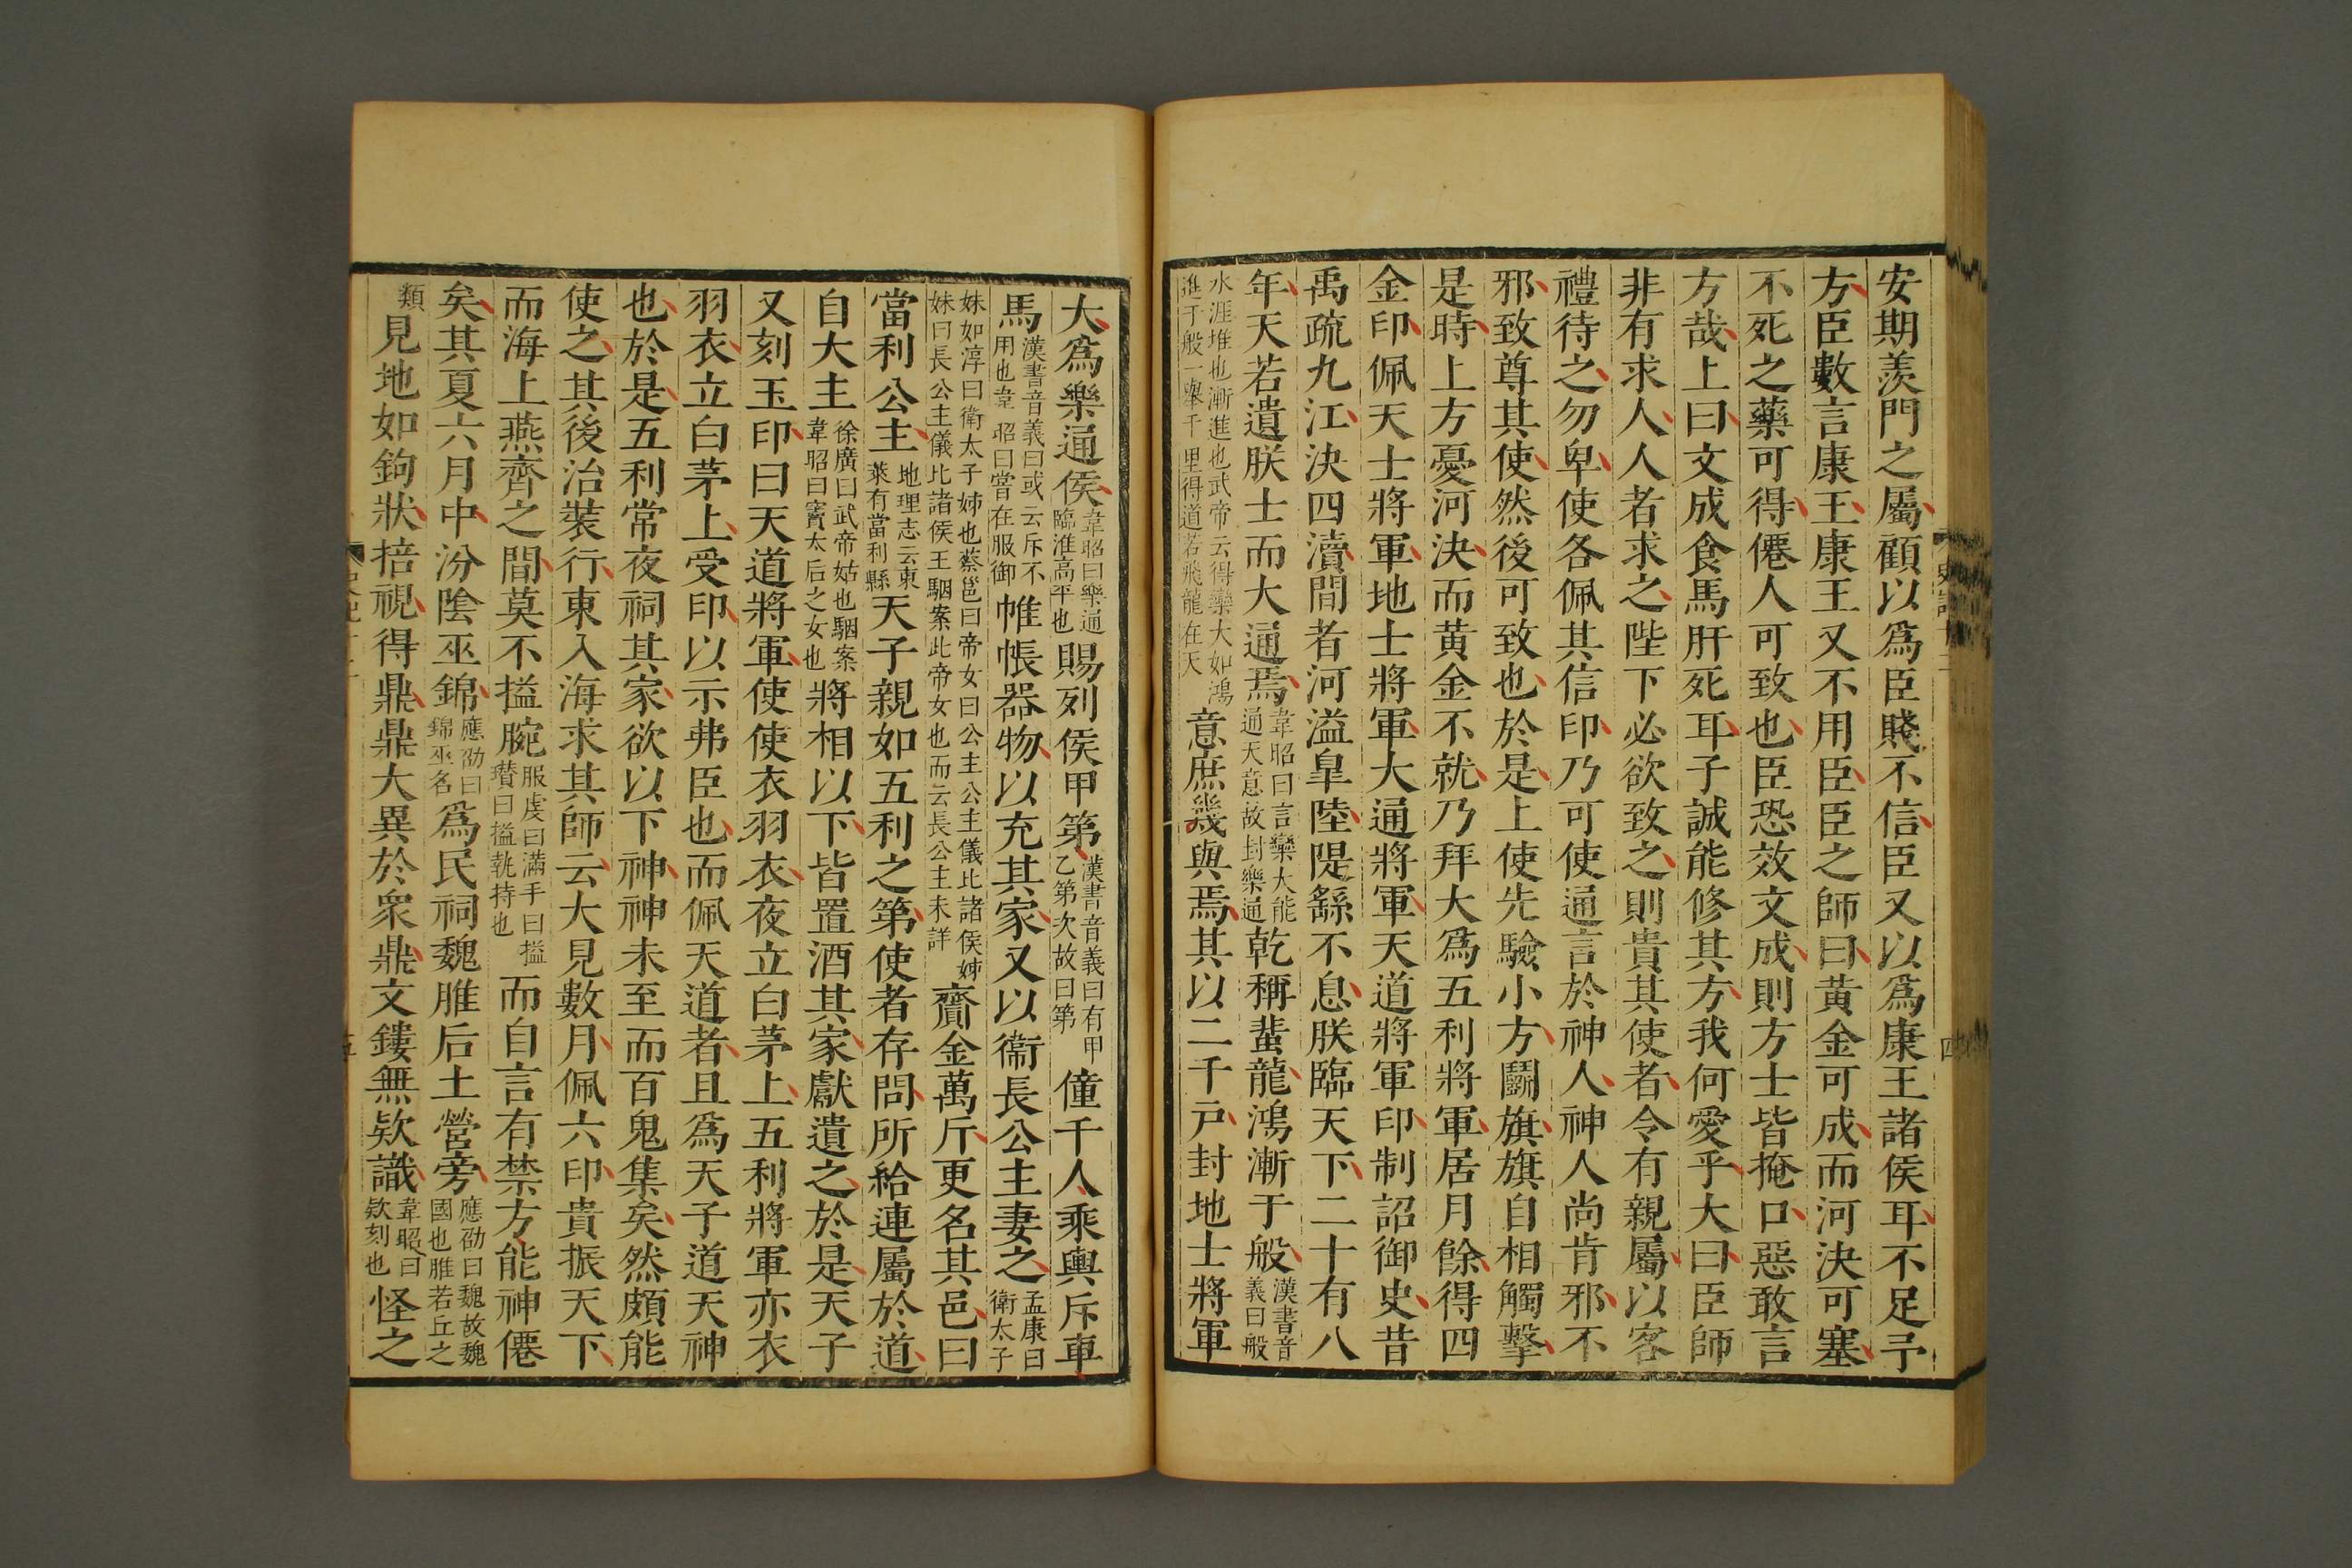 安期羨門之屬顧以爲臣賤不信臣又以爲康王諸侯耳不足予
方臣數言康王康王又不用臣臣之師曰黃金可成而河決可塞
不死之藥可得僊人可致也臣恐效文成則方士皆掩口惡敢言
方哉上曰文成食馬肝死耳子誠能修其方我何愛乎大曰臣師
非有求人人者求之陛下必欲致之則貴其使者令有親屬以客
禮待之勿卑使各佩其信印乃可使通言於神人神人尚肯邪不
邪致尊其使然後可致也於是上使先驗小方鬭旗旗自相觸擊
是時上方憂河決而黃金不就乃拜大爲五利將軍居月餘得四
金印佩天士將軍地士將軍大通將軍天道將軍印制詔御史昔
禹疏九江決四瀆間者河溢皐陸隄繇不息朕臨天下二十有八
年天若遺朕士而大通焉韋昭曰言欒大能通天意故封樂通乾稱蜚龍鴻漸于般漢書音義曰般
水涯堆也漸進也武帝云得欒大如鴻進于般一舉千里得道若飛龍在天意庶幾與焉其以二千戶封地士將軍
大爲樂通侯韋昭曰樂通臨淮高平也賜列侯甲第漢書音義曰有甲乙第次故曰第僮千人乘輿斥車
馬漢書音義曰或云斥不用也韋昭曰嘗在服御帷帳器物以充其家又以衞長公主妻之孟康曰衛太子
妹如淳曰衛太子姊也蔡邕曰帝女曰公主公主儀比諸侯姊妹曰長公主儀比諸侯王駰案此帝女也而云長公主未詳齎金萬斤更名其邑曰
當利公主地理志云東萊有當利縣天子親如五利之第使者存問所給連屬於道
自大主徐廣曰武帝姑也駰案韋昭曰竇太后之女也將相以下皆置酒其家獻遺之於是天子
又刻玉印曰天道將軍使使衣羽衣夜立白茅上五利將軍亦衣
羽衣立白茅上受印以示弗臣也而佩天道者且爲天子道天神
也於是五利常夜祠其家欲以下神神未至而百鬼集矣然頗能
使之其後治裝行東入海求其師云大見數月佩六印貴振天下
而海上燕齊之間莫不搤腕服虔曰滿手曰搤瓉曰搤執持也而自言有禁方能神僊
矣其夏六月中汾隂巫錦應劭曰錦巫名爲民祠魏脽后土營旁應劭曰魏故魏國也脽若丘之
類見地如鉤狀掊視得鼎鼎大異於衆鼎文鏤無欵識韋昭曰欵刻也怪之